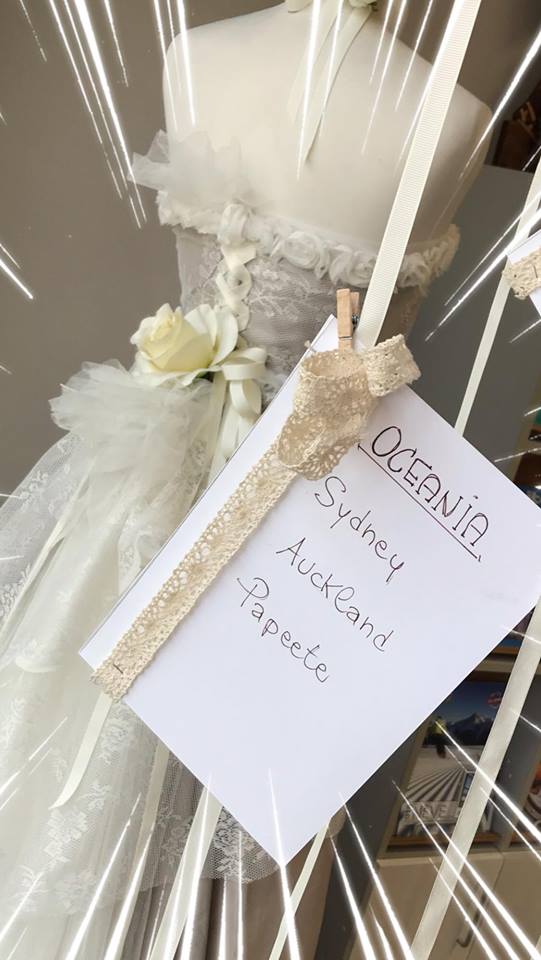 OCEANIA
Sydney
Auckland
Papeete